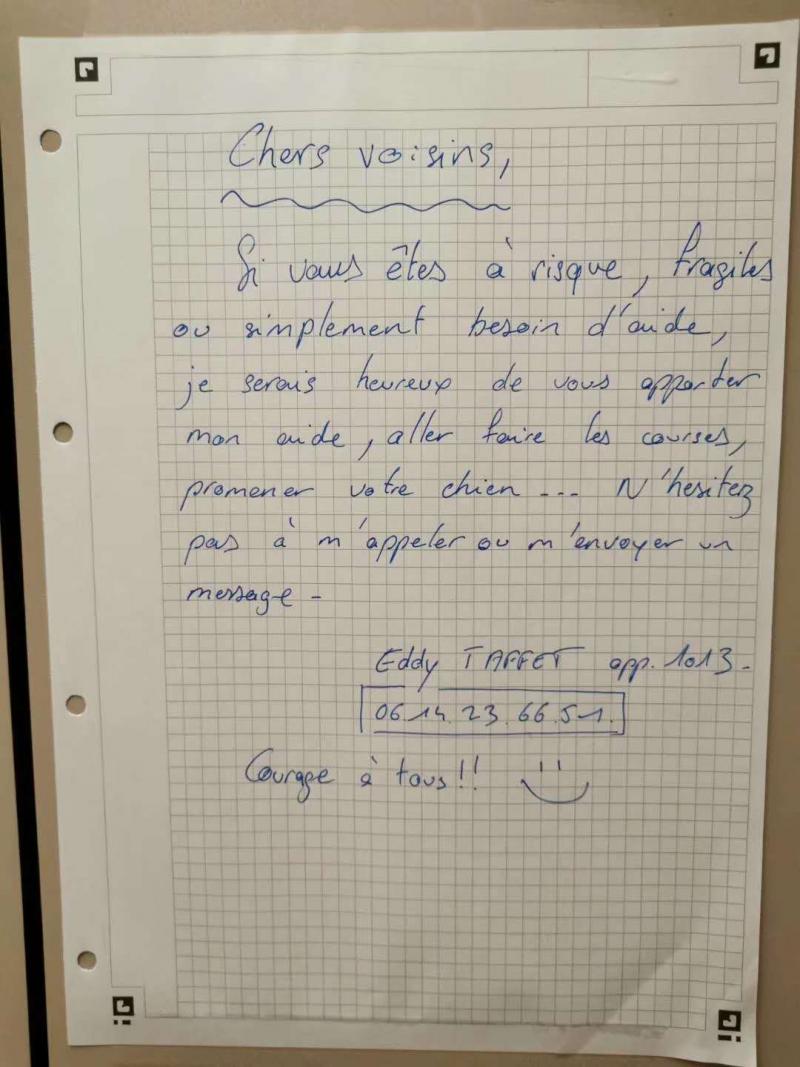 Chers voisins,
Si vous êtes à risque, fragiles
ou simplement besoin d'aide,
je serais heureux de vous apporter
mon aide, aller faire les courses,
promener votre chien... N'hesitez
pas à m'appeler ou m'envoyer un
message -
Eddy TAFFET app. 1013-
06.14.23.66.51.
Courage à tous!!